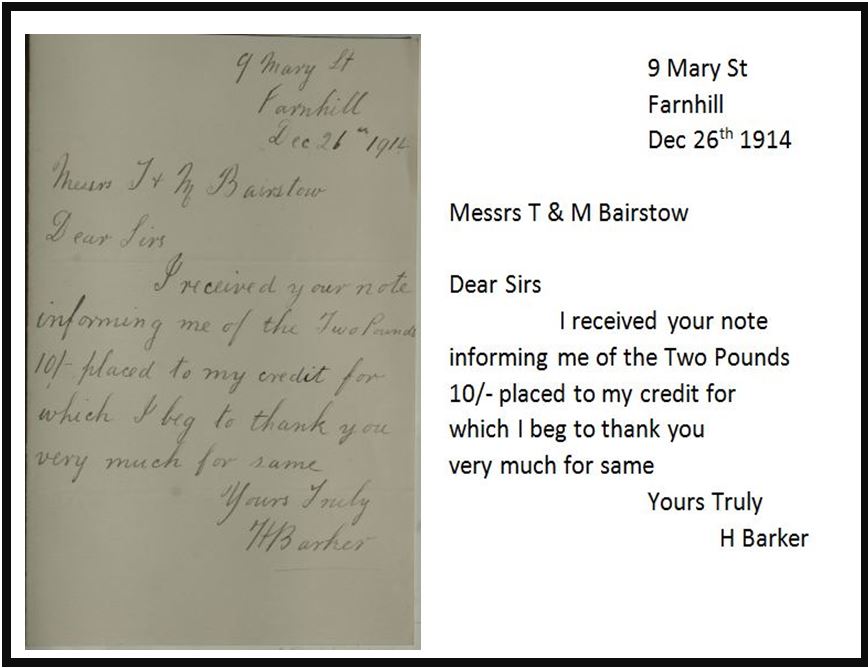 9 Mary St
Farnhill
Dec 26th 1914
Messrs T & M Bairstow
Dear Sirs
I received your note
informing me of the Two Pounds
10/- placed to my credit for
which I beg to thank you
very much for same
Yours Truly
H Barker
9 Mary St
Farnhill
Dec 26th 1914
Messrs T & M Bairstow
Dear Sirs
I received your note
informing me of the Two Pounds
10/- placed to my credit for
which I beg to thank you
very much for same
Yours Truly
H Barker